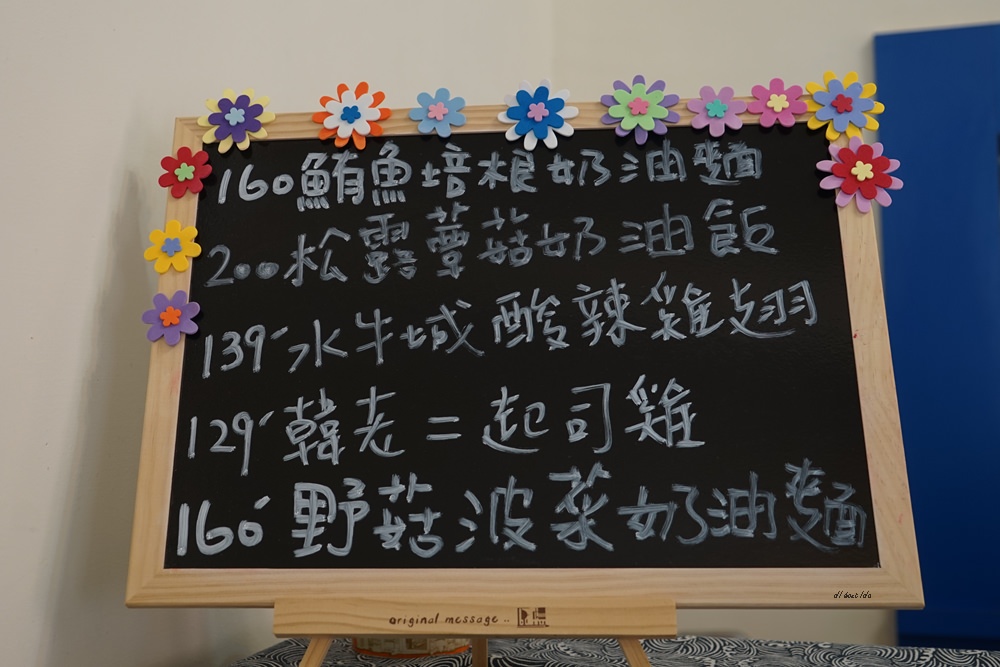 160鮪魚培根奶油麵
200松露蕈菇奶油飯
139水牛城酸辣雞翅
129韓老=起司雞
160野菇波菜奶油麵
original message..